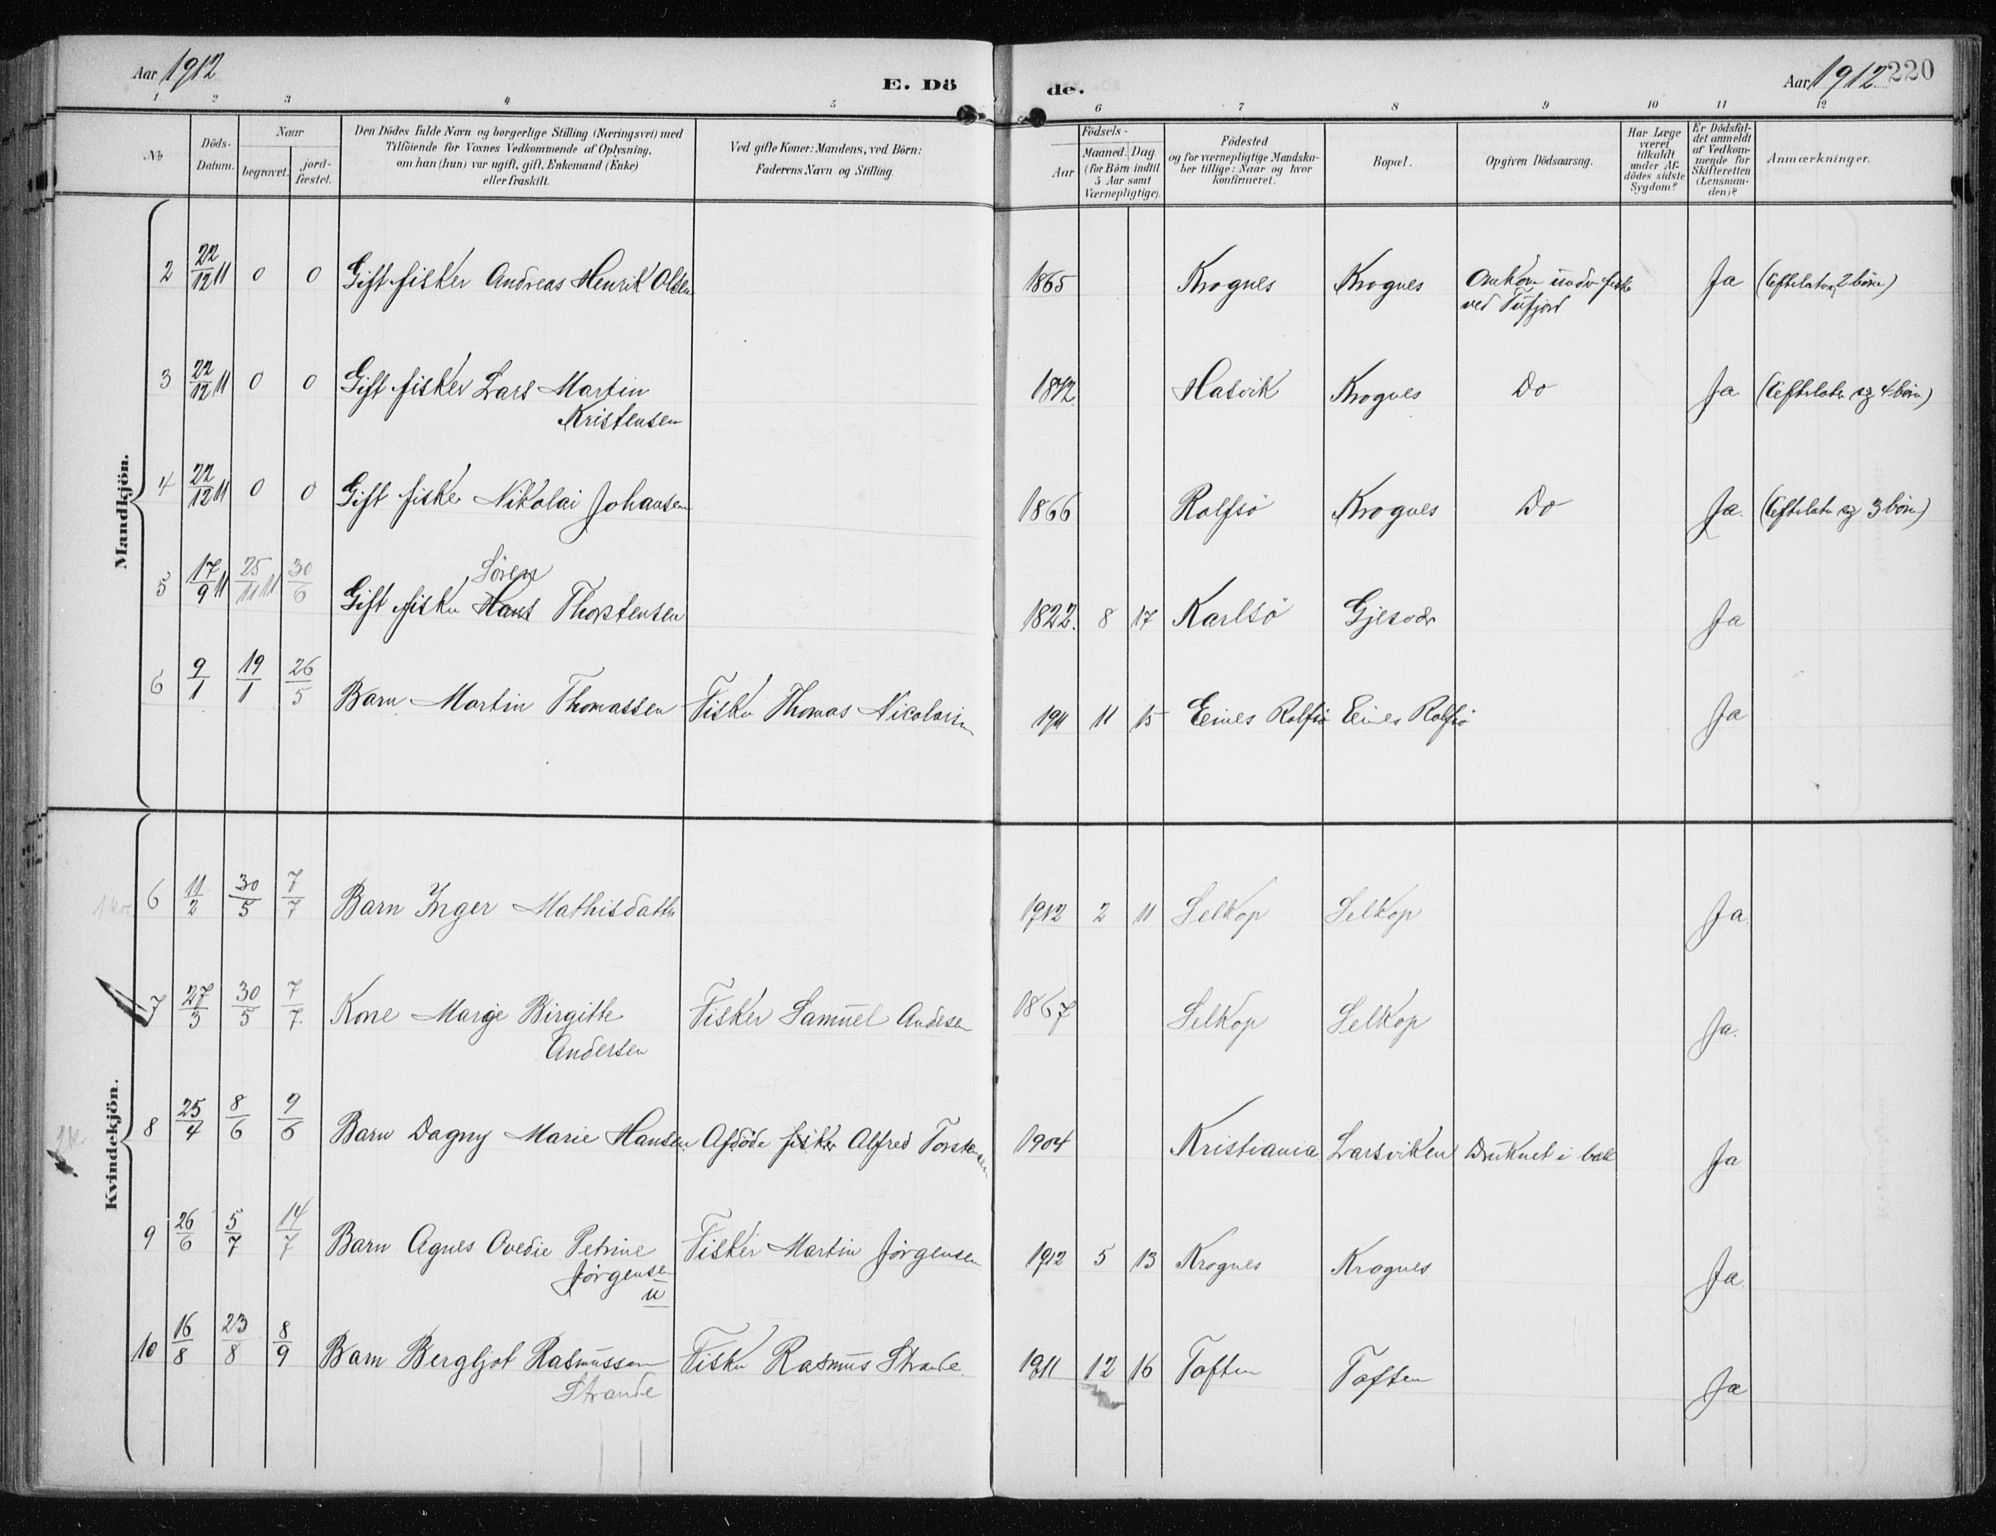 Aar 1912
E. Dö
de.
Aar 1912 220
1 2 3 4 5 6 7 8 9 10 11 12
No
Döds-
Datum.
Naar
begravet.
jord-
fæstet.
Den Dödes fulde Navn og borgerlige Stilling (Næringsvei) med
Tilföiende for Voxnes Vedkommende af Oplysning,
om han (hun) var ugift, gift, Enkemand (Enke)
eller fraskilt.
Ved gifte Koner: Mandens, ved Börn:
Faderens Navn og Stilling.
Födsels-
Aar
Maaned. Dag
(for Börn indtil
5 Aar samt
Værnepligtige).
Födested
og for værnepligtige Mandska-
ber tillige: Naar og hvor
konfirmeret.
Bopæl.
Opgiven Dödsaarsag.
Har Læge
været
tilkaldt
under Af-
dödes sidste
Sygdom?
Er Dödsfal-
det anmeldt
af Vedkom-
mende for
Skifteretten
(Lensman-
den)?
Anmærkninger.
Mandkjön.
2 22/12 11 0 0 Gift fisker Andreas Henrik Olsen 1865 Krognes Krognes Omkom under fiske Ja (Efterlater 2 børn)
ved Tufjord
3 22/12 11 0 0 Gift fisker Lars Martin 1872 Hasvik Krognes Do Ja (Efterlater sig 4 børn)
Kristensen
4 22/12 11 0 0 Gift fisker Nikolai Johansen 1866 Rolfsö Krognes Do Ja. (Efterlater sig 3 børn)
Sören
5 17/9 11 25/11 11 30/6 Gift fisker Hans Thorstensen 1822. 8 17 Karlsö Gjesvær Ja
6 9/1 19/1 26/5 Barn Martin Thomassen Fisker Thomas Nicolaisen 1911 11 15 Eines Rolfsö Eines Rolfsö Ja
Kvindekjön.
6 11/2 30/5 7/7 Barn Inger Mathisdatter 1912 2 11 Selkop Selkop Ja.
7 27/3 30/5 7/7. Kone Marge Birgitte Fisker Samuel Andersen 1867 Selkop Selkop Ja.
Andersen
8 25/4 8/6 9/6 Barn Dagny Marie Hansen. Afdöde fisker Alfred Torstensen 1904 Kristiania Larsviken Druknet i Ja
9 26/6 5/7 14/7 Barn Agnes Ovedie Petrine Fisker Martin Jörgensen 1912 5 13 Krognes Krognes Ja.
Jörgensen
u
10 16/8 23/8 8/9 Barn Bergljot Rasmussen Fisker Rasmus Strande. 1911 12 16 Toften Toften Ja
Strande